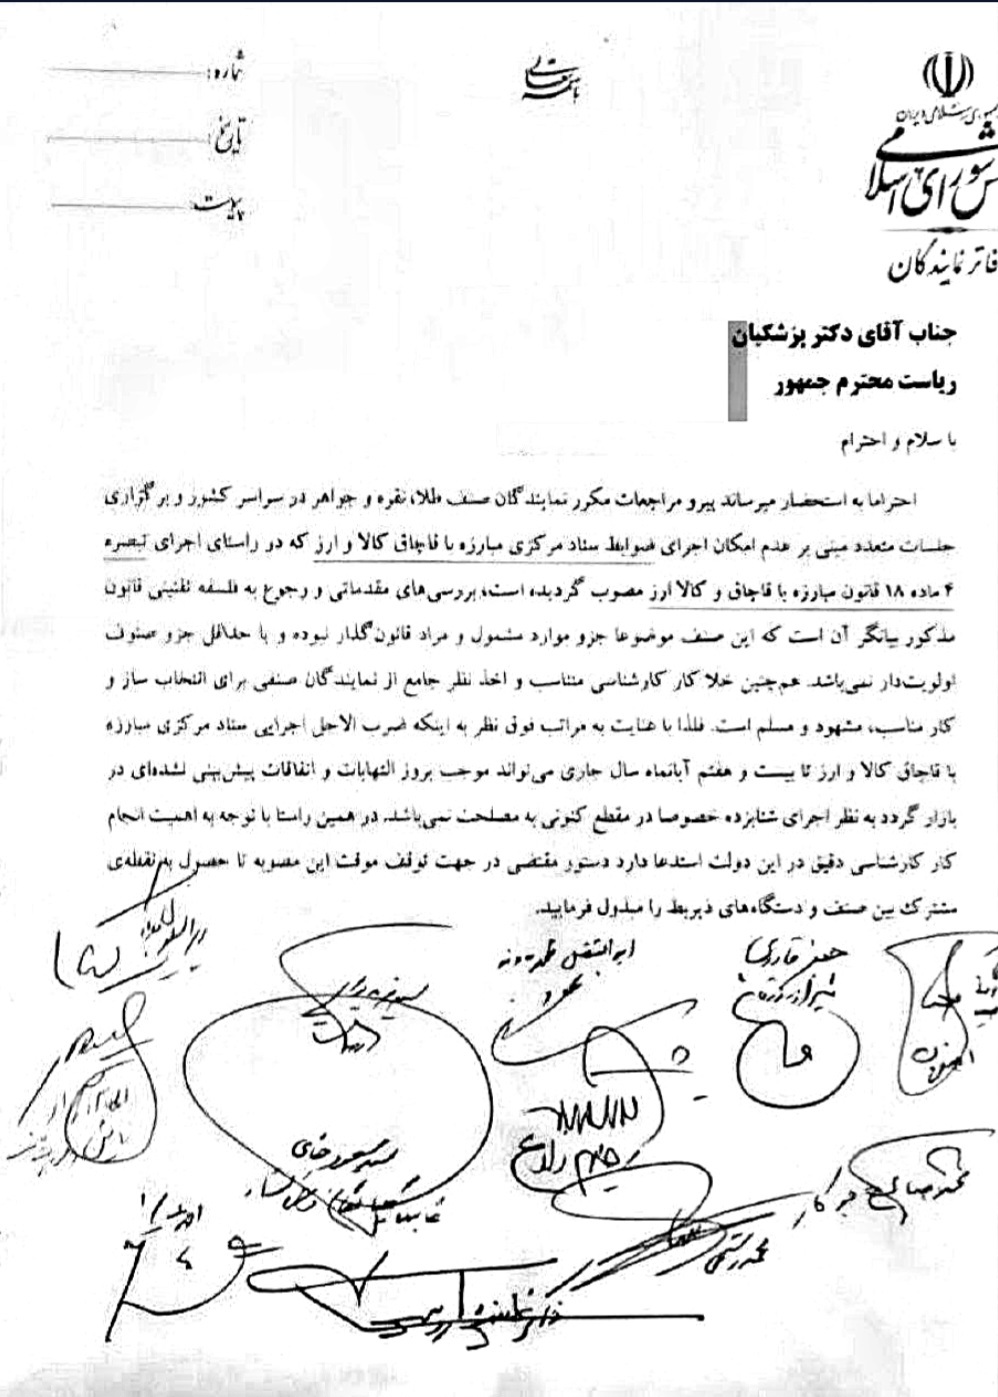 باسمه تعالی
جمهوری اسلامی ایران
شورای اسلامی
نمایندگان
شماره:
تاریخ:
پیوست:
جناب آقای دکتر پزشکیان
ریاست محترم جمهور
با سلام و احترام
احتراما به استحضار میرساند پیرو مراجعات مکرر نمایندگان صنف طلا، نقره و جواهر در سراسر کشور و برگزاری
جلسات متعدد مبنی بر عدم امکان اجرای ضوابط ستاد مرکزی مبارزه با قاچاق کالا و ارز که در راستای اجرای تبصره
۴ ماده ۱۸ قانون مبارزه با قاچاق و کالا ارز مصوب گردیده است، بررسی‌های مقدماتی و رجوع به فلسفه تقنینی قانون
مذکور بیانگر آن است که این صنف موضوعا جزو موارد مشمول و مراد قانون‌گذار نبوده و یا حداقل جزو صنوف
اولویت‌دار نمی‌باشد. هم‌چنین خلا کار کارشناسی متناسب و اخذ نظر جامع از نمایندگان صنفی برای انتخاب ساز و
کار مناسب، مشهود و مسلم است. فلذا با عنایت به مراتب فوق نظر به اینکه ضرب الاجل اجرایی ستاد مرکزی مبارزه
با قاچاق کالا و ارز تا بیست و هفتم آبانماه سال جاری می‌تواند موجب بروز التهابات و اتفاقات پیش‌بینی نشده‌ای در
بازار گردد به نظر اجرای شتابزده خصوصا در مقطع کنونی به مصلحت نمی‌باشد. در همین راستا با توجه به اهمیت انجام
کار کارشناسی دقیق در این دولت استدعا دارد دستور مقتضی در جهت توقف موقت این مصوبه تا حصول به نقطه‌ی
مشترک بین صنف و دستگاه‌های ذیربط را مبذول فرمایید.
جعفر قادری